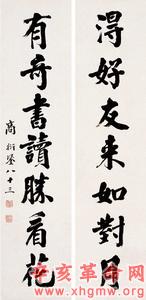 得好友来如對月
有奇書讀勝看花
商衍鎏八十三
辛亥革命网
www.xhgmw.org